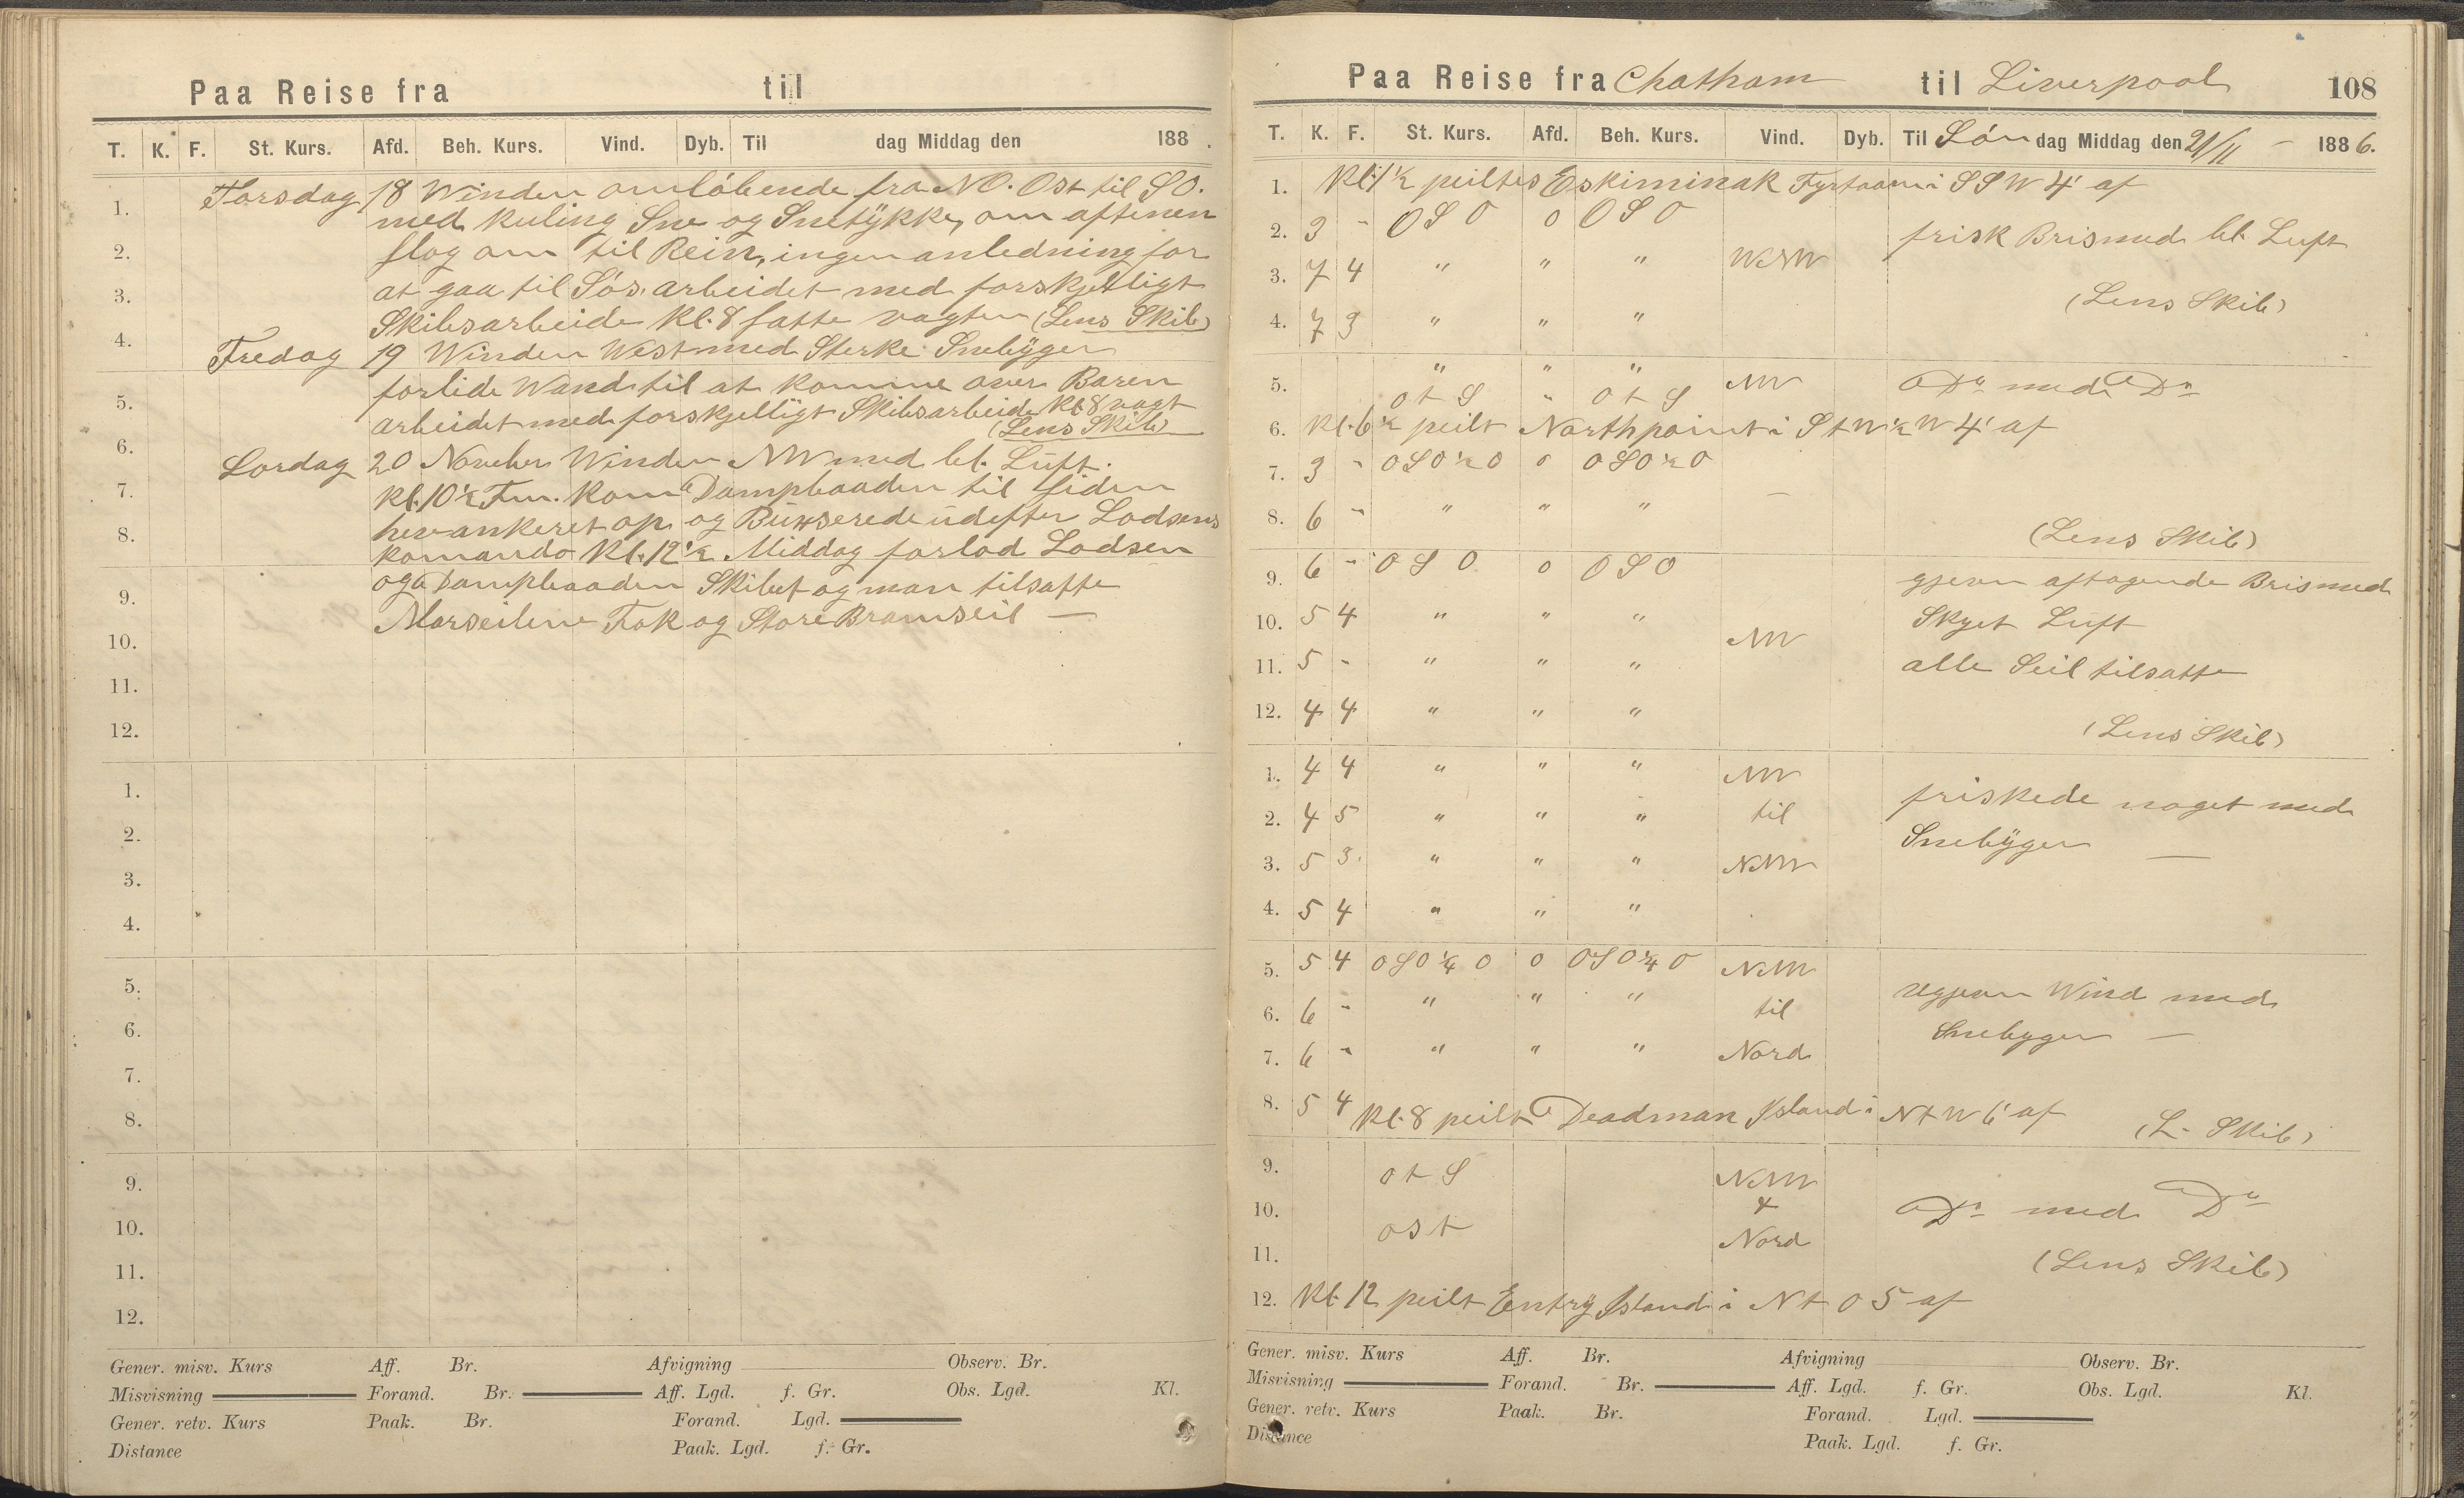 Paa Reise fra til
T. K. F. St. Kurs. Afd. Beh. Kurs. Vind. Dyb. Til dag Middag den 188 .
Torsdag 18 Winden omløbende fra NO. Ost til SO.
1. med Kuling Sne og Snetÿkke, om aftenen
2. slog om til Rein, ingen anledning for
3. at gaa til Søs. arbeidet med forskjelligt
Skibsarbeide Kl. 8 satte vagten (Lens Skib)
4. Fredag 19 Winden West med Sterke Snebÿger
forlide Wand til at komme over Baren
5. arbeidet med forskjelligt Skibsarbeide Kl 8 vagt
(Lens Skib)
6. Lordag 20 November Winden NW med bl. Lüft.
7. Kl. 10½ Fm. Kom Dampbaaden til siden
hev ankeret op og Büxserede üdefter Lodsens
8. Komando Kl. 12½ Middag forlod Lodsen
og Dampbaaden Skibet og man tilsatte
9. Marseilene Fok og Store Bramseil —
10.
11.
12.
1.
2.
3.
4.
5.
6.
7.
8.
9.
10.
11.
12.
Gener. misv. Kurs Aff. Br. Afvigning Observ. Br.
Misvisning Forand. Br. Aff. Lgd. f. Gr. Obs. Lgd. Kl.
Gener. retv. Kurs Paak. Br. Forand. Lgd.
Distance Paak. Lgd. f. Gr.
Paa Reise fra Chatham til Liverpool 108
T. K. F. St. Kurs. Afd. Beh. Kurs. Vind. Dyb. Til Søn dag Middag den 21/11 - 1886.
1. Kl. 1½ peiltes Eskiminak Fyrtaarn i SSW 4' af
2. 3 - OSO 0 OSO frisk Bris med bl. Luft
3. 7 4 " " " WNW
(Lens Skib)
4. 7 3 " " "
5. " " "
OtS " OtS NW Do med Do
6. Kl. 6½ peilt Northpoint i StW½W 4' af
7. 3 - OSO½O 0 OSO½O
8. 6 - " " " —
(Lens Skib)
9. 6 - OSO 0 OSO gjevn aftagende Bris med
10. 5 4 " " " NW Skyet Lüft
11. 5 - " " " alle Seil tilsatte
12. 4 4 " " "
(Lens Skib)
1. 4 4 " " " NW friskede noget med
2. 4 5 " " " til Snebÿger —
3. 5 3 " " " NNW
4. 5 4 " " "
5. 5 4 OSO¼O 0 OSO¼O NNW
6. 6 - " " " til Ugjevn Wind med
7. 6 - " " " Nord Snebyger —
8. 5 4 Kl. 8 peilt Deadman Island i NtW 6' af
(L. Skib)
9. OtS NNW
10. & Do med Do
Ost Nord
11. (Lens Skib)
12. Kl 12 peilt Entrÿ Island i NtO 5 af
Gener. misv. Kurs Aff. Br. Afvigning Observ. Br.
Misvisning Forand. Br. Aff. Lgd. f. Gr. Obs. Lgd. Kl.
Gener. retv. Kurs Paak. Br. Forand. Lgd.
Distance Paak. Lgd. f. Gr.